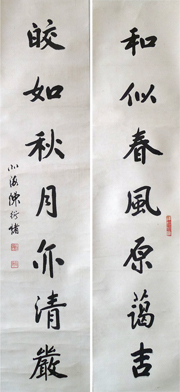 和似春風原藹吉
皎如秋月亦清嚴
小海陳衍緒